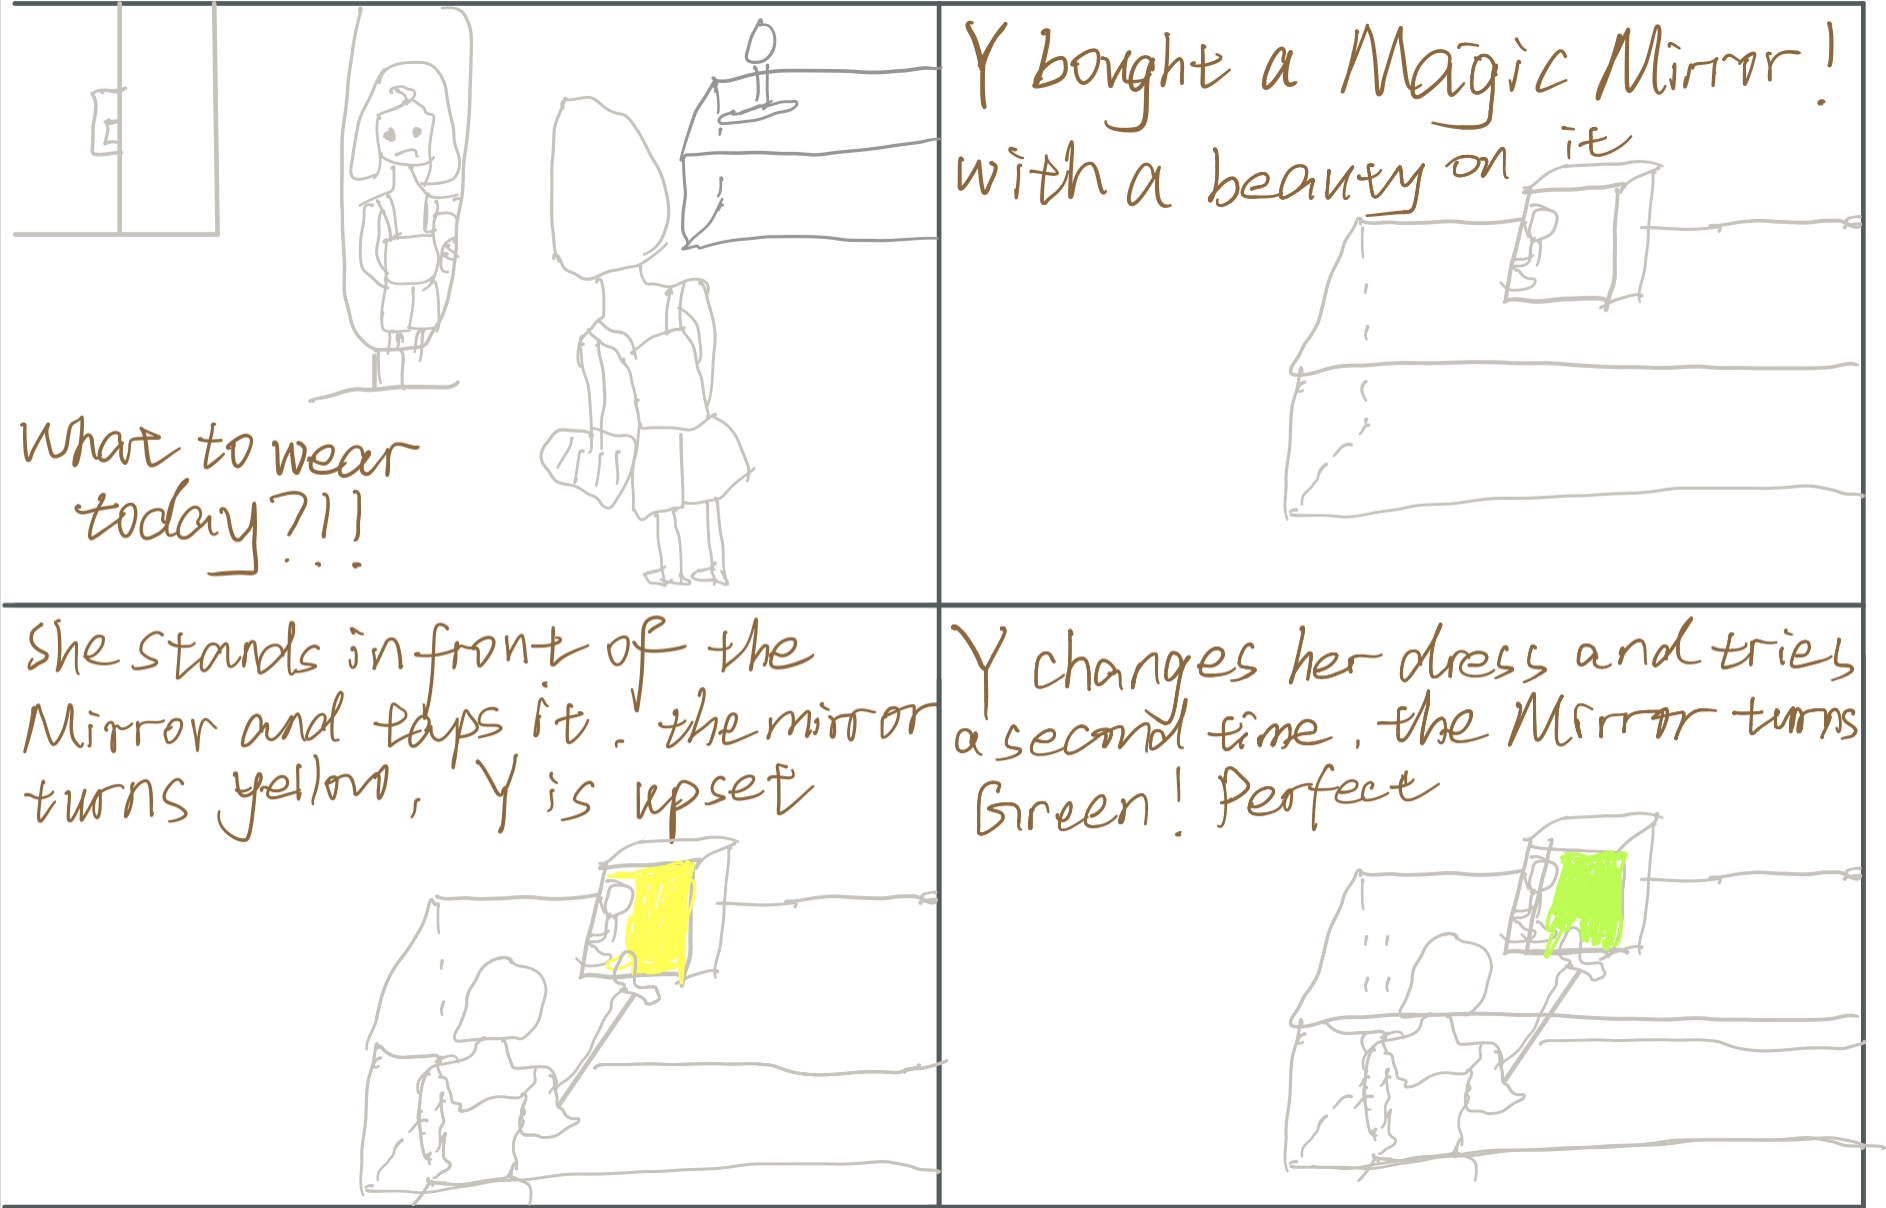 What to wear
today?!!
Y bought a Magic Mirror!
with a beauty on it
She stands in front of the
Mirror and taps it, the mirror
turns yellow, Y is upset
Y changes her dress and tries
a second time, the Mirror turns
Green! Perfect